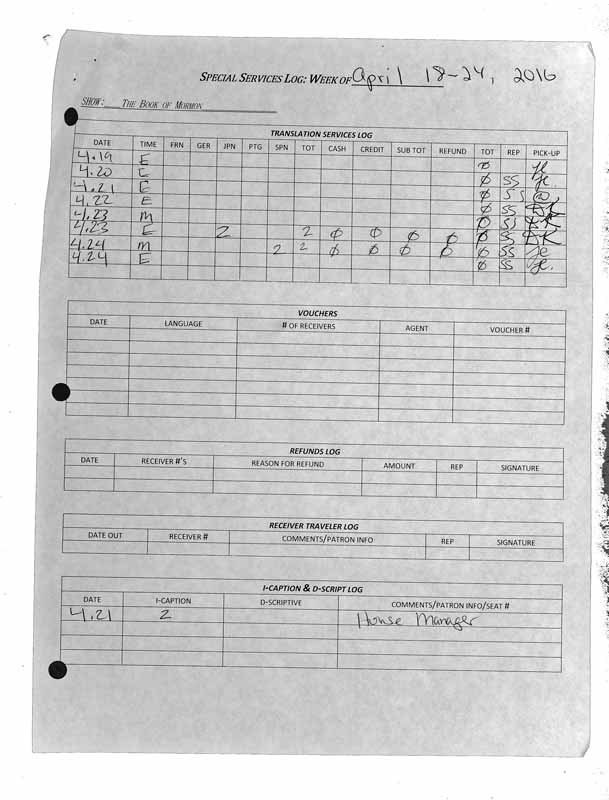 SPECIAL SERVICES LOG: WEEK OF April 18-24, 2016
SHOW: THE BOOK OF MORMON
TRANSLATION SERVICES LOG
DATE TIME FRN GER JPN PTG SPN TOT CASH CREDIT SUB TOT REFUND TOT REP PICK-UP
4.19 E Ø
4.20 E Ø SS
4.21 E Ø SS
4.22 E Ø SS DK
4.23 M Ø SS DK
4.23 E 2 2 Ø Ø Ø Ø Ø SS DK
4.24 M 2 2 Ø Ø Ø Ø Ø SS
4.24 E Ø SS
VOUCHERS
DATE LANGUAGE # OF RECEIVERS AGENT VOUCHER #
REFUNDS LOG
DATE RECEIVER #'S REASON FOR REFUND AMOUNT REP SIGNATURE
RECEIVER TRAVELER LOG
DATE OUT RECEIVER # COMMENTS/PATRON INFO REP SIGNATURE
I-CAPTION & D-SCRIPT LOG
DATE I-CAPTION D-SCRIPTIVE COMMENTS/PATRON INFO/SEAT #
4.21 2 House Manager